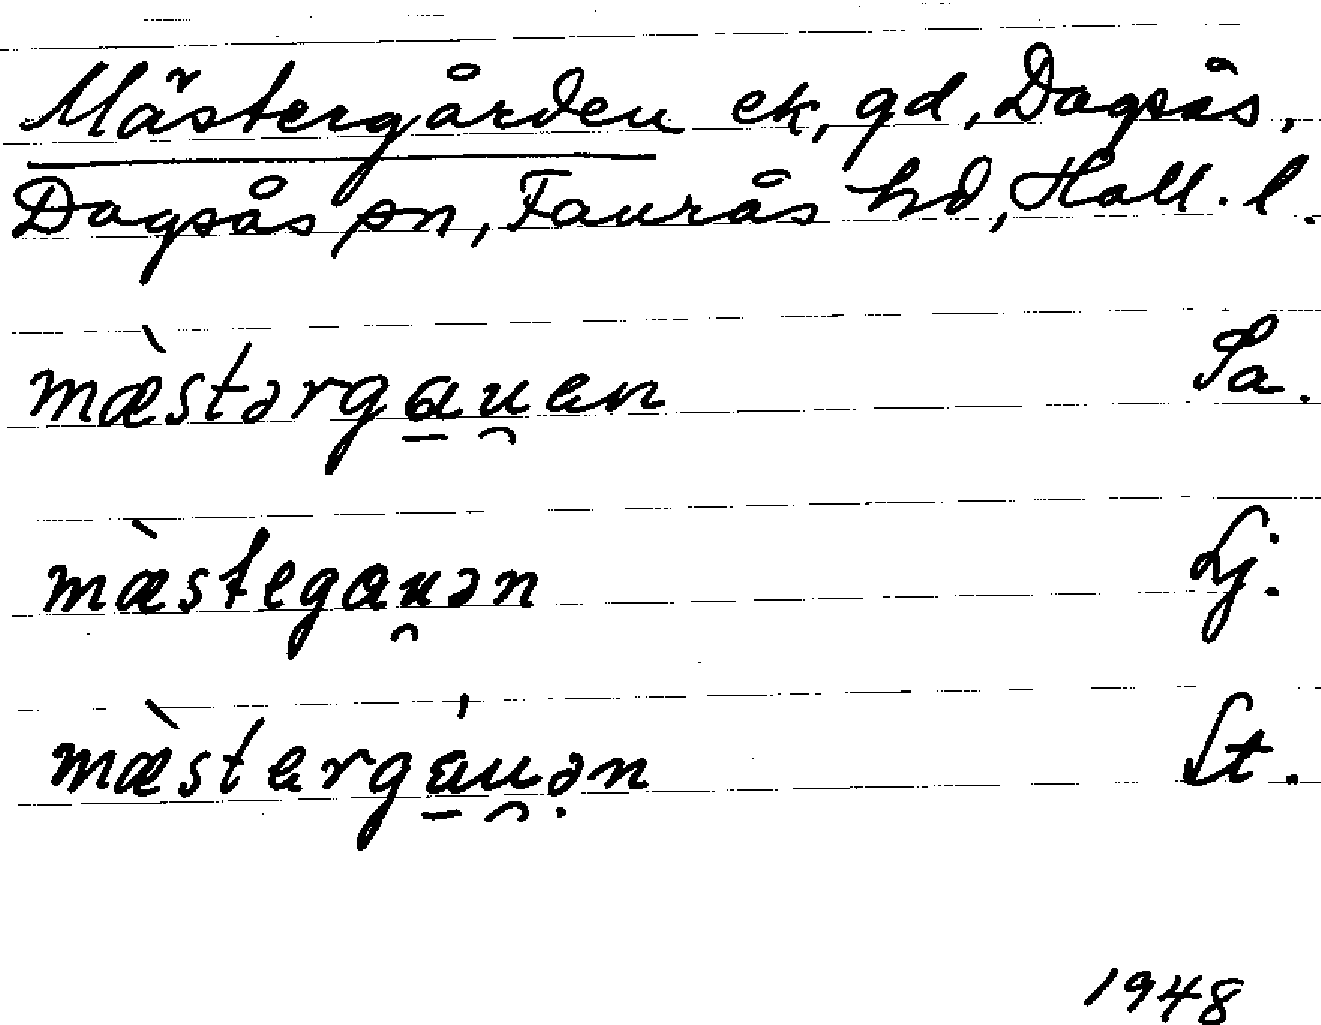 Mästergården ek, gd, Dagsås,
Dagsås sn, Faurås hd, Hall. l.
mæ̀stərga̱u̯en Sa.
mæ̀stegau̯ən Lj.
mæ̀stergá̱u̯ə̣n St.
1948